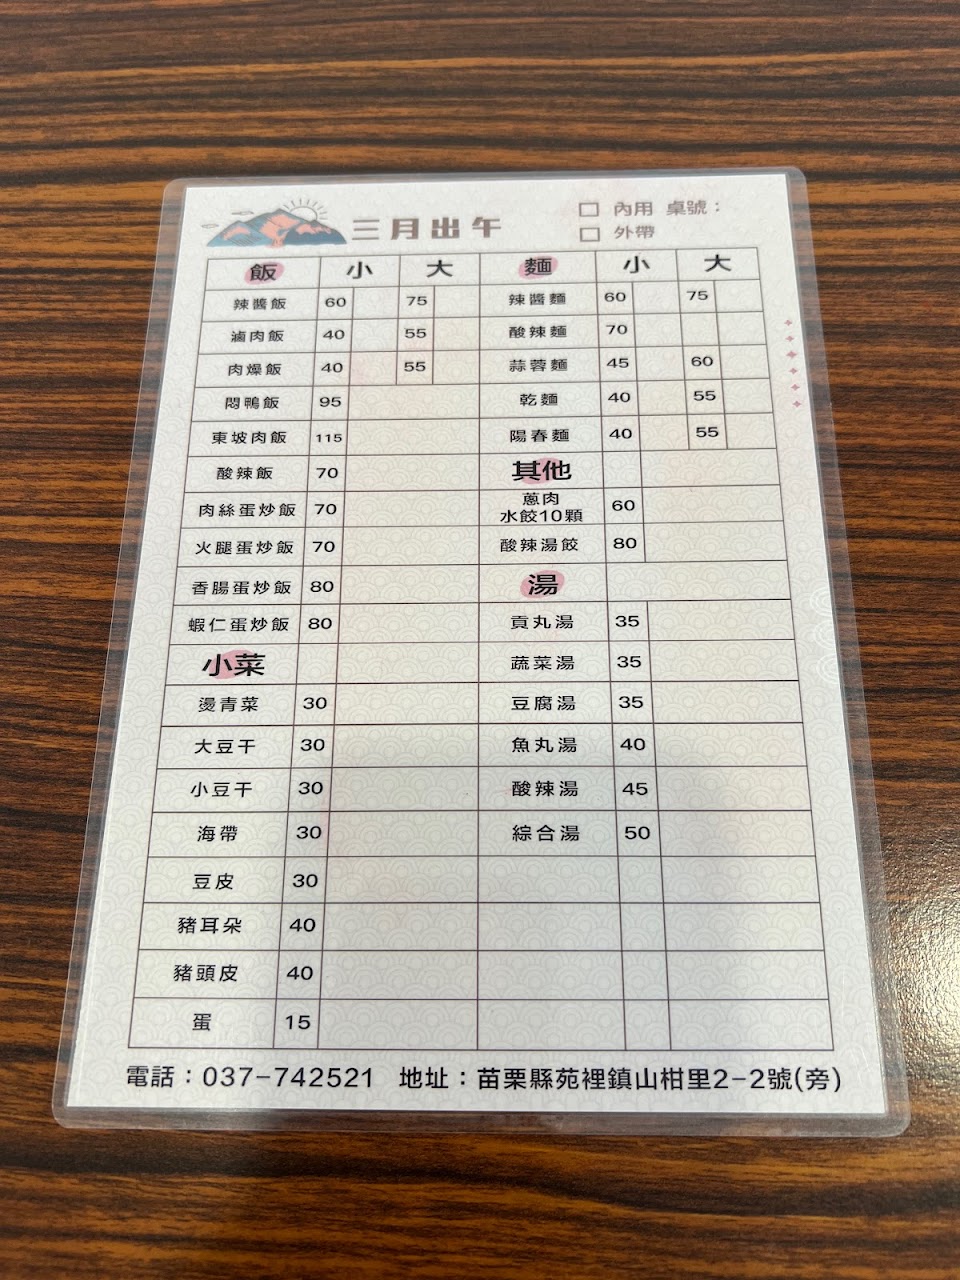 三月出午
內用 桌號：
外帶
飯 小 大 麵 小 大
辣醬飯 60 75 辣醬麵 60 75
滷肉飯 40 55 酸辣麵 70
肉燥飯 40 55 蒜蓉麵 45 60
悶鴨飯 95 乾麵 40 55
東坡肉飯 115 陽春麵 40 55
酸辣飯 70 其他
肉絲蛋炒飯 70 蔥肉水餃10顆 60
火腿蛋炒飯 70 酸辣湯餃 80
香腸蛋炒飯 80 湯
蝦仁蛋炒飯 80 貢丸湯 35
小菜 蔬菜湯 35
燙青菜 30 豆腐湯 35
大豆干 30 魚丸湯 40
小豆干 30 酸辣湯 45
海帶 30 綜合湯 50
豆皮 30
豬耳朵 40
豬頭皮 40
蛋 15
電話：037-742521 地址：苗栗縣苑裡鎮山柑里2-2號(旁)